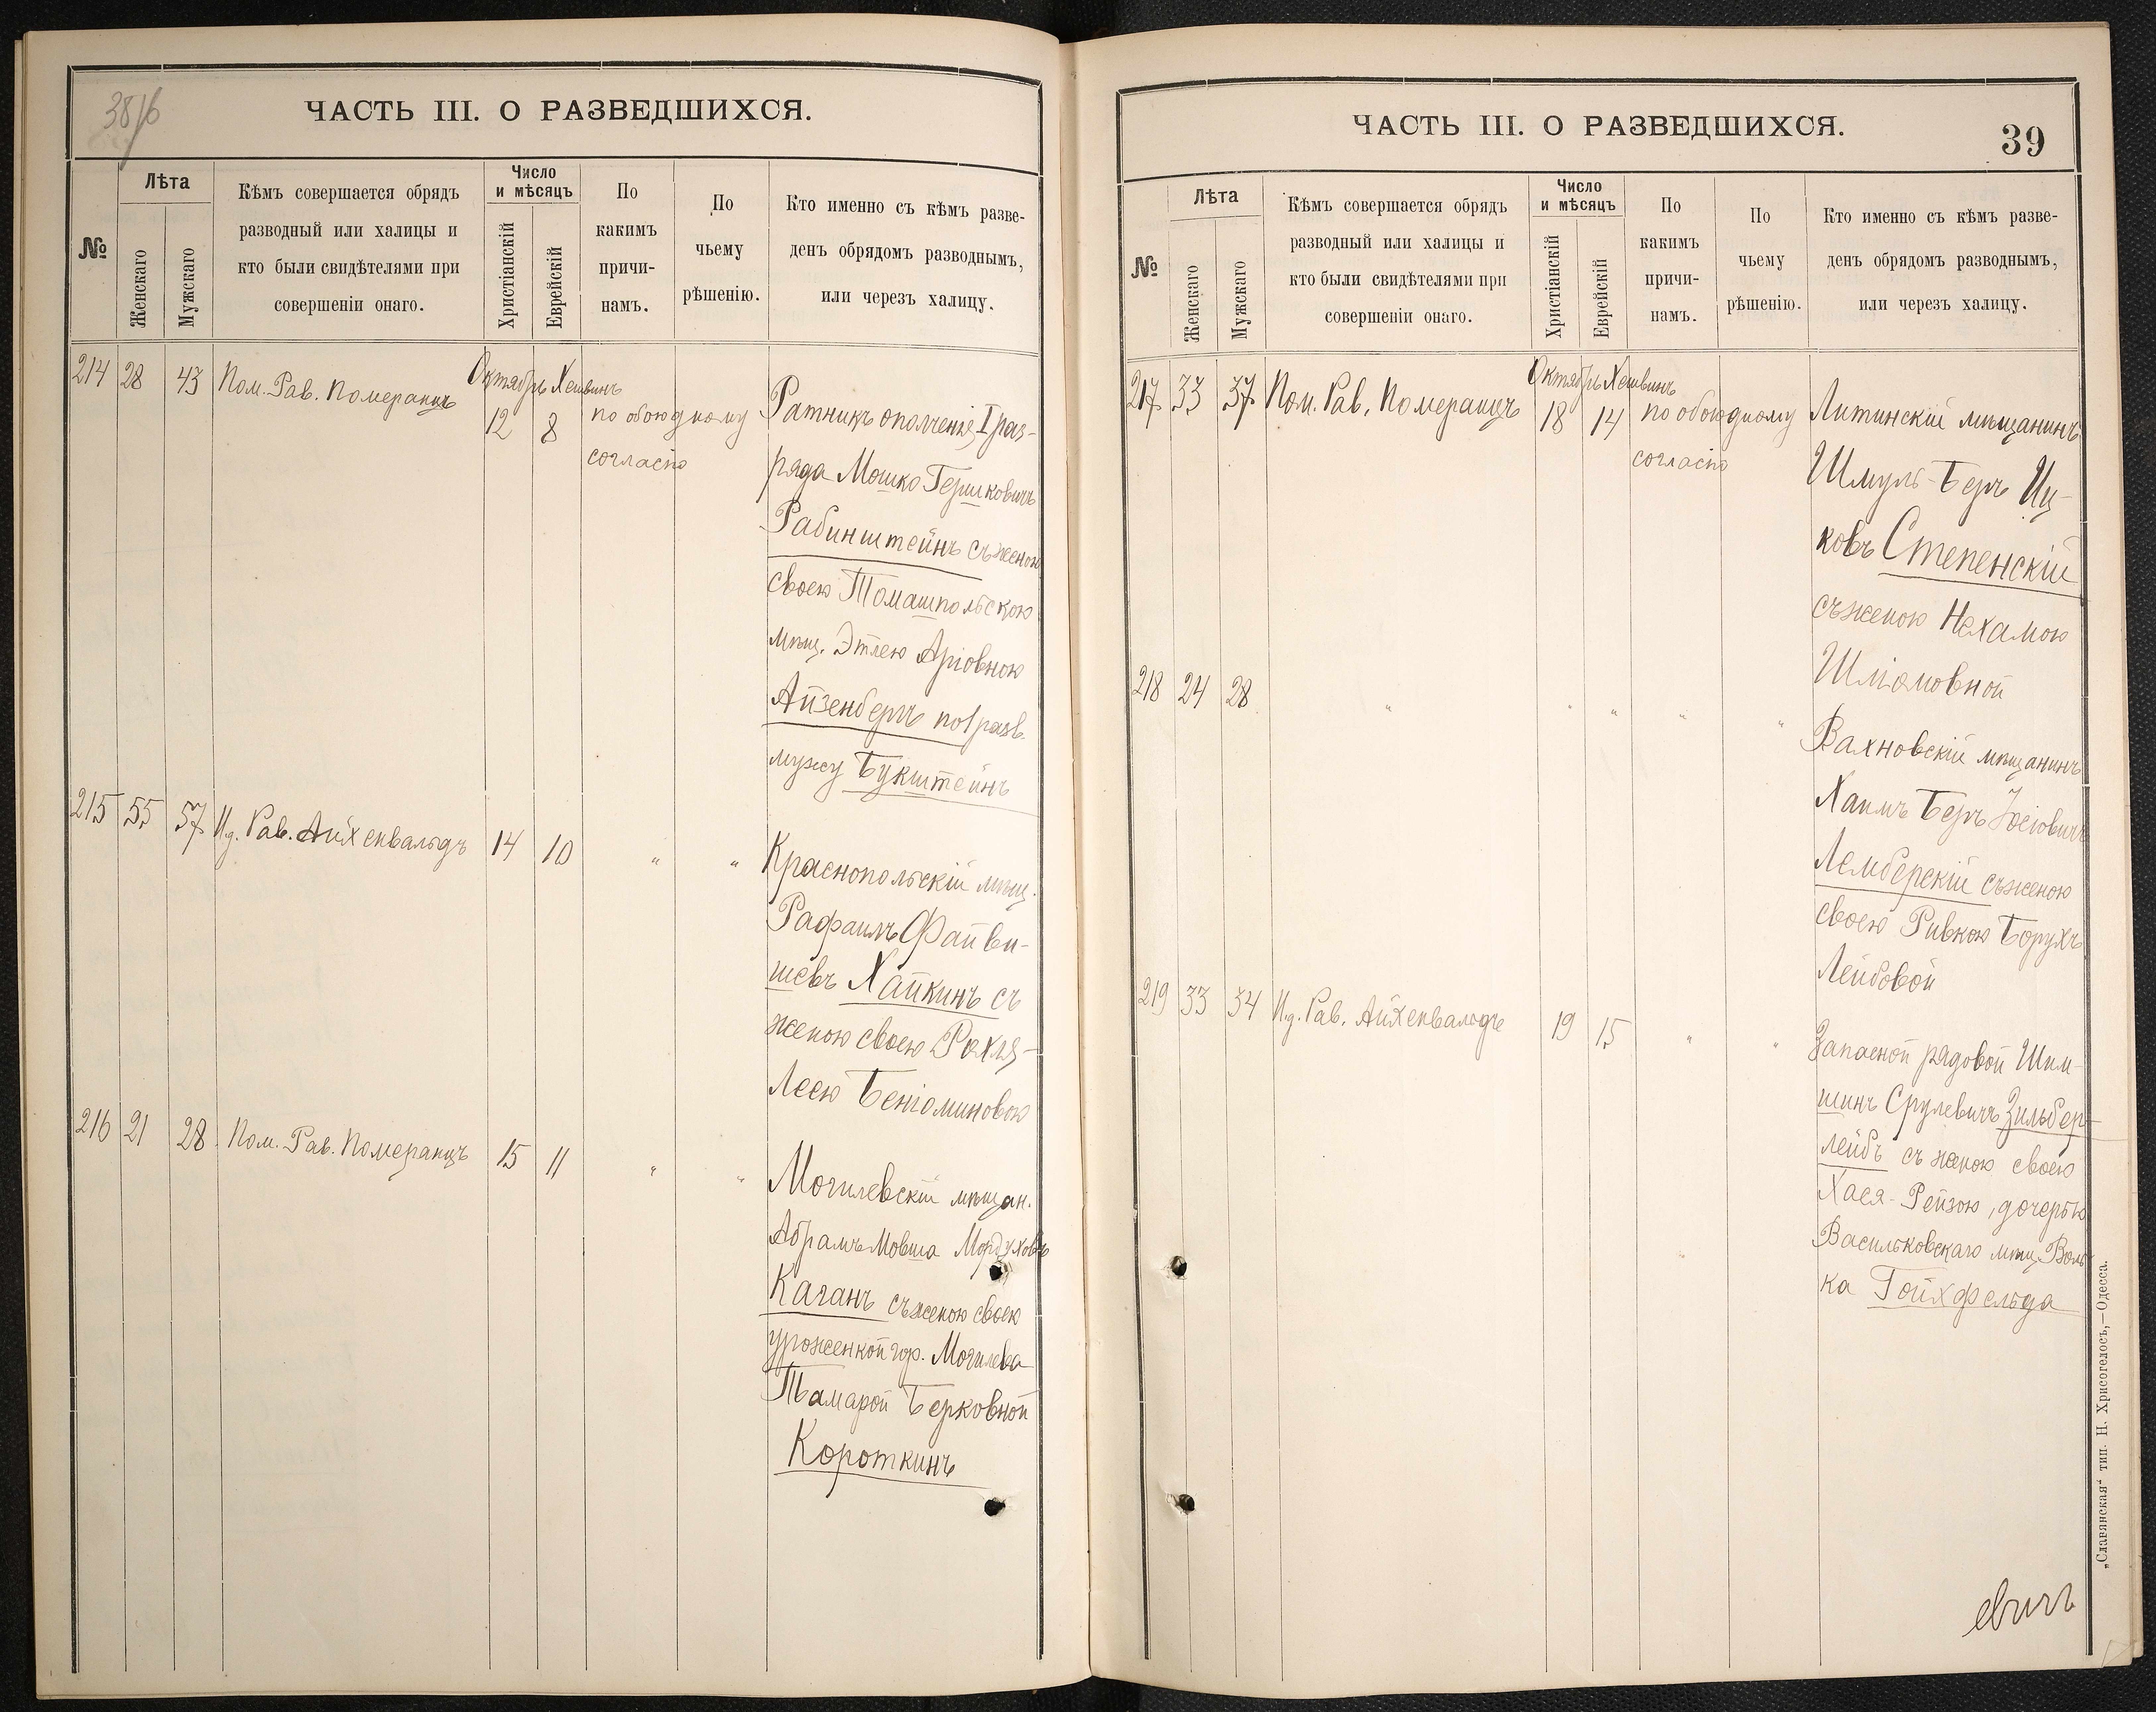 ЧАСТЬ III. О РАЗВЕДШИХСЯ.
№
Лѣта
Женскаго
Мужскаго
Кѣмъ совершается обрядъ
разводный или халицы и
кто были свидѣтелями при
совершеніи онаго.
Число
и мѣсяцъ
Христіанскій
Еврейскій
По
какимъ
причи-
намъ.
По
чьему
рѣшенію.
Кто именно съ кѣмъ разве-
денъ обрядомъ разводнымъ,
или черезъ халицу.
214 28 43 Пом. Рав. Померанцъ
Октябрь Хешвинъ
12 8
по обоюдному
согласію
Ратникъ ополченія I раз-
ряда Мошко Гершковичъ
Рабинштейнъ съ женою
своею Томашпольскою
мѣщ. Этлею Аріовною
Айзенбергъ по I разв.
мужу Букштейнъ
215 55 57 И.д. Рав. Айхенвальдъ 14 10 " "
Краснопольскій мѣщ.
Рафаилъ Файви-
шевъ Хайкинъ съ
женою своею Рохля-
Леею Беніоминовою
216 21 28 Пом. Рав. Померанцъ 15 11 " "
Могилевскій мѣщан.
Абрамъ Мовша Мордуховъ
Каганъ съ женою своею
уроженкой гор. Могилева
Тамарой Берковной
Короткинъ
ЧАСТЬ III. О РАЗВЕДШИХСЯ.
39
№
Лѣта
Женскаго
Мужскаго
Кѣмъ совершается обрядъ
разводный или халицы и
кто были свидѣтелями при
совершеніи онаго.
Число
и мѣсяцъ
Христіанскій
Еврейскій
По
какимъ
причи-
намъ.
По
чьему
рѣшенію.
Кто именно съ кѣмъ разве-
денъ обрядомъ разводнымъ,
или черезъ халицу.
217 33 37 Пом. Рав. Померанцъ
Октябрь Хешвинъ
18 14
по обоюдному
согласію
Литинскій мѣщанинъ
Шмуль-Беръ Иц-
ковъ Степенскій
съ женою Нехамою
Шліомовной
218 24 28 " " " " "
Вахновскій мѣщанинъ
Хаимъ Беръ Іосіовичъ
Лемберскій съ женою
своею Ривкою Борухъ
Лейбовой
219 33 34 И.д. Рав. Айхенвальдъ 19 15 " "
Запасной рядовой Шим-
шинъ Срулевичъ Зильбер-
лейбъ съ женою своею
Хася-Рейзою, дочерью
Васильковскаго мѣщ. Воль-
ка Гойхфельда
евичъ
„Славянская“ тип. Н. Хрисогелосъ,—Одесса.